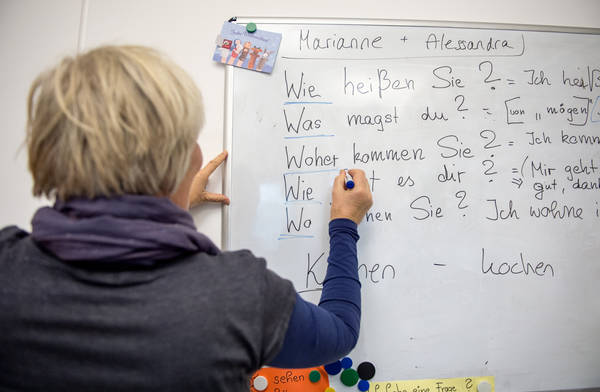 Marianne + Alessandra
Wie heißen Sie ? = Ich heiß
Was magst du ? = [von „mögen"]
Woher kommen Sie ? = Ich komm
Wie es dir ? = (Mir geht
⇒ gut, dank
Wo Sie ? Ich wohne i
K chen – kochen
sehen
habe eine Frage ?